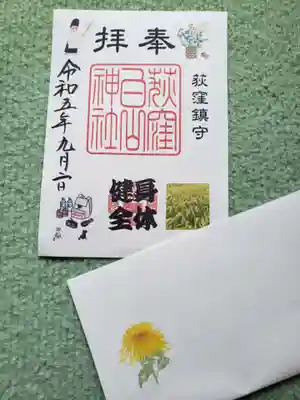 奉拝
荻窪鎮守
荻窪
白山
神社
身体
健全
令和五年九月一日